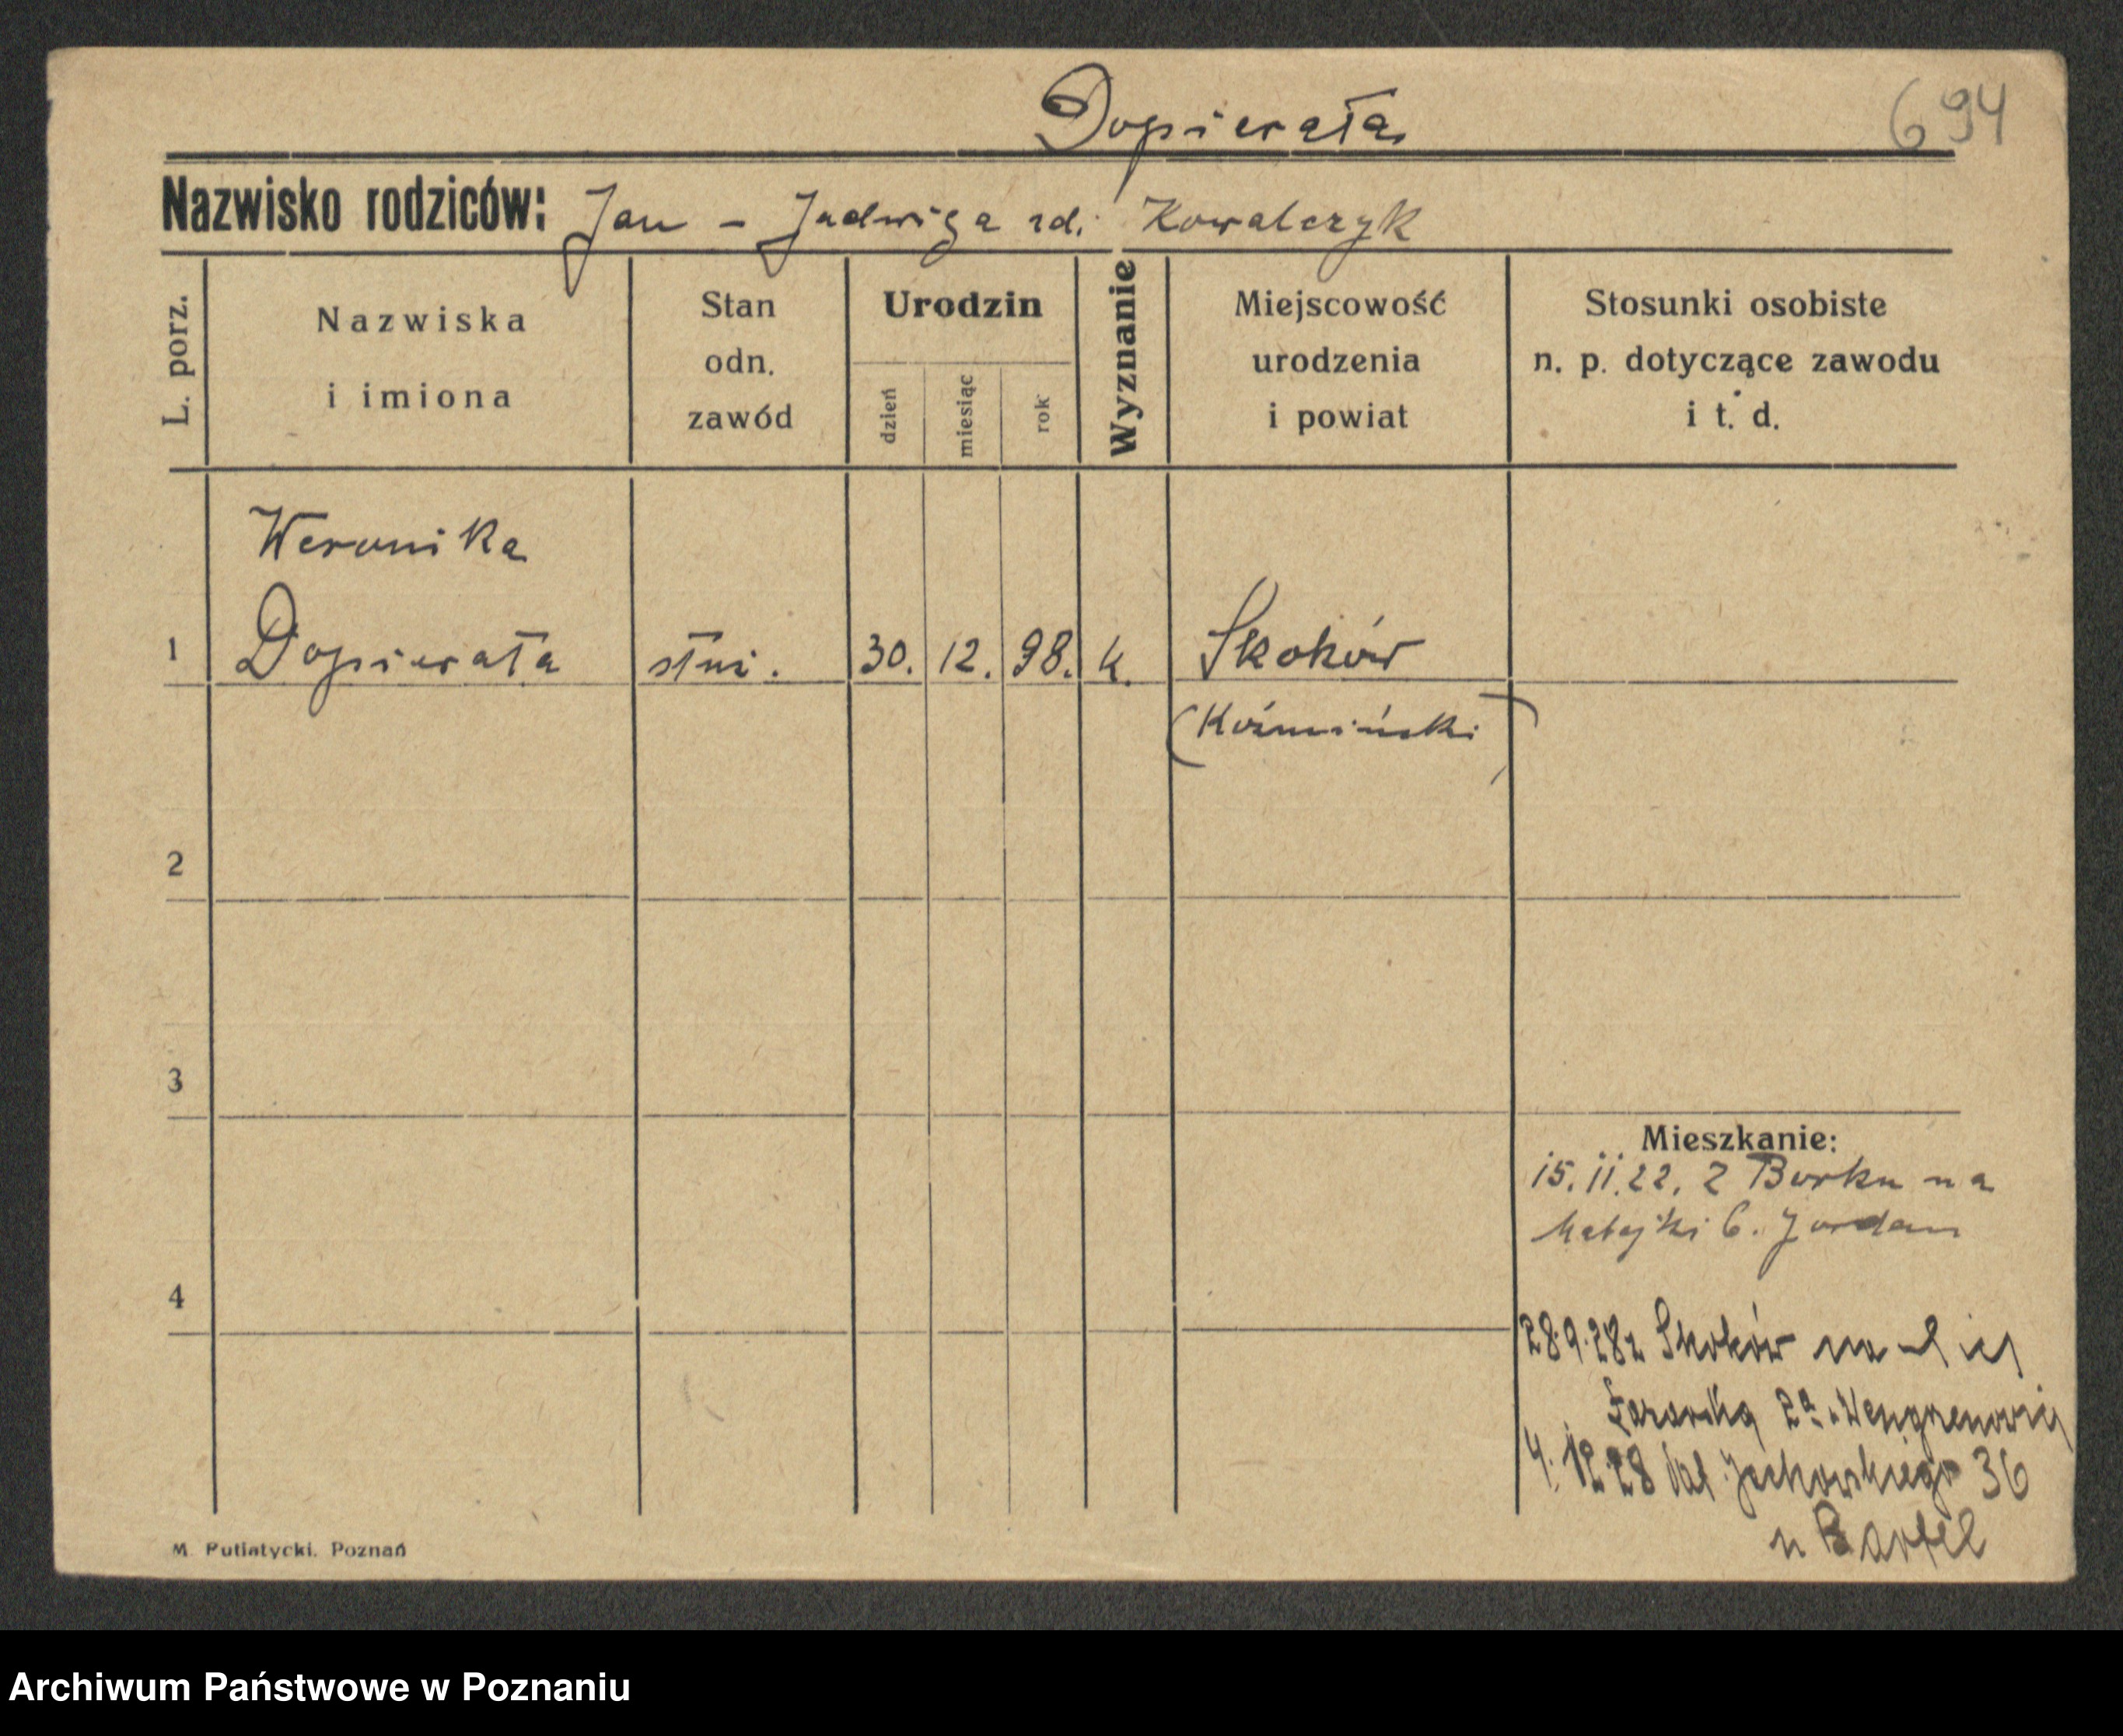 Dopierała
694
Nazwisko rodziców: Jan - Jadwiga rd. Kowalczyk
L. porz.
Nazwiska
i imiona
Stan
odn.
zawód
Urodzin
dzień
miesiąc
rok
Wyznanie
Miejscowość
urodzenia
i powiat
Stosunki osobiste
n. p. dotyczące zawodu
i t. d.
Weronika
1 Dopierała służ. 30. 12. 98. k. Skoków
(Koźmiński)
2
3
4
Mieszkanie:
15.11.22. z Borku na
Matejki 6. Jordan
28.9.28 z Skoków na
2a
4.12.28 Jackowskiego 36
u Bartel
M. Putiatycki. Poznań
Archiwum Państwowe w Poznaniu